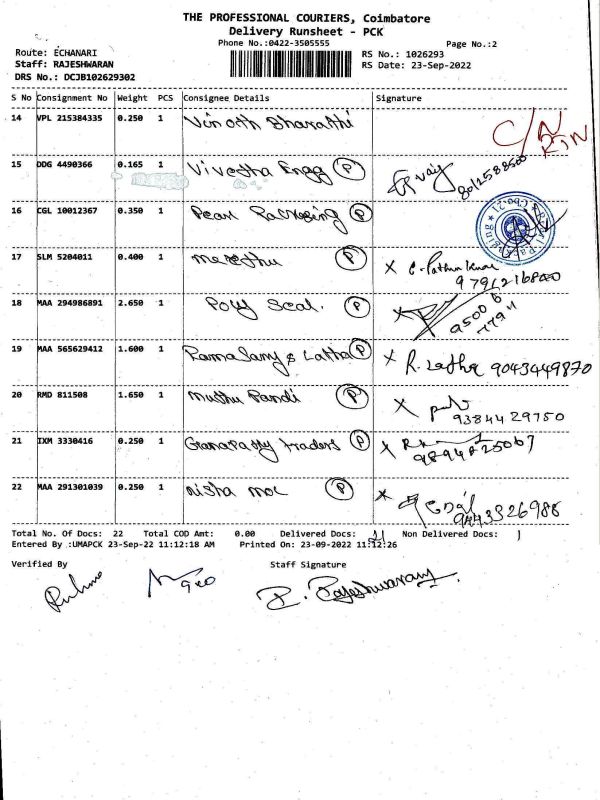 THE PROFESSIONAL COURIERS, Coimbatore
Delivery Runsheet - PCK
Phone No.:0422-3505555 Page No.:2
Route: ECHANARI RS No.: 1026293
Staff: RAJESHWARAN RS Date: 23-Sep-2022
DRS No.: DCJB102629302
S No Consignment No Weight PCS Consignee Details Signature
14 VPL 215384335 0.250 1 Vinoth Bharathi C/N RTN
15 DDG 4490366 0.165 1 Vivetha Engg P 8012588500
16 CGL 10012367 0.350 1 Pearl Packaging P
17 SLM 5204011 0.400 1 P X
18 MAA 294986891 2.650 1 Poly Seal. P X 95006
19 MAA 565629412 1.600 1 Ramasamy & Latha P X R. Latha 9043449870
20 RMD 811508 1.650 1 Muthu Pandi P X 9384429750
21 IXM 3330416 0.250 1 Ganapathy traders P X 9894825067
22 MAA 291301039 0.250 1 Nisha P X 9443326986
Total No. Of Docs: 22 Total COD Amt: 0.00 Delivered Docs: 21 Non Delivered Docs: 1
Entered By :UMAPCK 23-Sep-22 11:12:18 AM Printed On: 23-09-2022 11:12:26
Verified By Staff Signature
P. Rajeshwaran